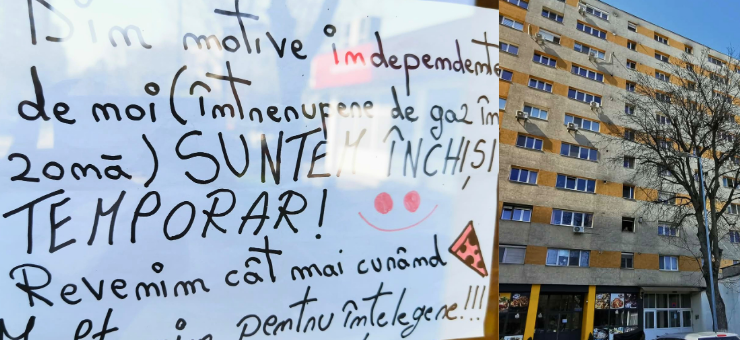 Din motive independente
de noi (întrerupere de gaz în
zonă) SUNTEM ÎNCHIȘI
TEMPORAR!
Revenim cât mai curând
pentru întelegere!!!